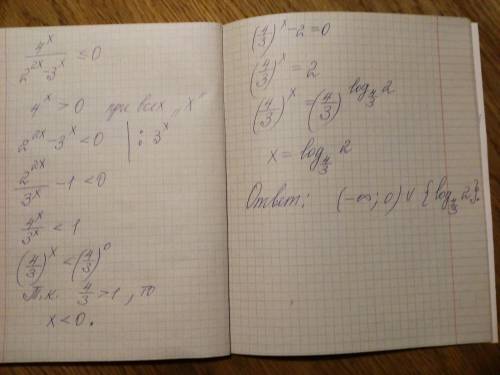 4^x / (2^{2x} - 3^x) ≤ 0
4^x > 0 при всех „x"
2^{2x} - 3^x < 0 | : 3^x
2^{2x} / 3^x - 1 < 0
4^x / 3^x < 1
(4/3)^x < (4/3)^0
Т.к. 4/3 > 1, то
x < 0.
(4/3)^x - 2 = 0
(4/3)^x = 2
(4/3)^x = (4/3)^{log_{4/3} 2}
x = log_{4/3} 2
Ответ: (-∞; 0) ∪ {log_{4/3} 2}.